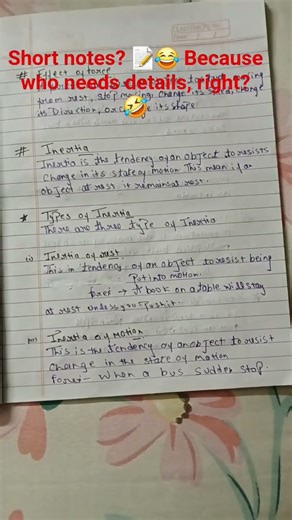 Short notes? 📝😂 Because
who needs details, right?
🤣
# Effect of force
from rest, stop moving, change its
its Direction, or its shape
# Ineatia
Inertia is the tendency of an object to resists
change in its state of motion This mean if an
object at rest. it remains at rest.
* Types of Inertia
There are three type of Inertia
(i) Inertia of rest
This in tendency of an object to resist being
Put into motion.
forex → A book on a table will stay
at rest unless you Push it.
Inertia of Motion
This is the tendency of an object to resist
change in the state of motion
forex - When a bus sudden stop.